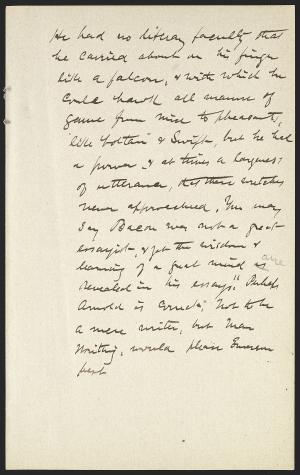 He had no literary faculty that
he carried about on his finger
like a falcon, & with which he
could hawk all manner of
game from mice to pheasants,
like Voltaire & Swift, but he had
a power & at times a largeness
of utterance, that these wretches
never approached. You may
say Bacon was not a great
essayist, & yet the wisdom &
learning of a great mind is are
revealed in his essays." Perhaps
Arnold is correct; Not to be
a mere writer, but Man
Writing, would please Emerson
best